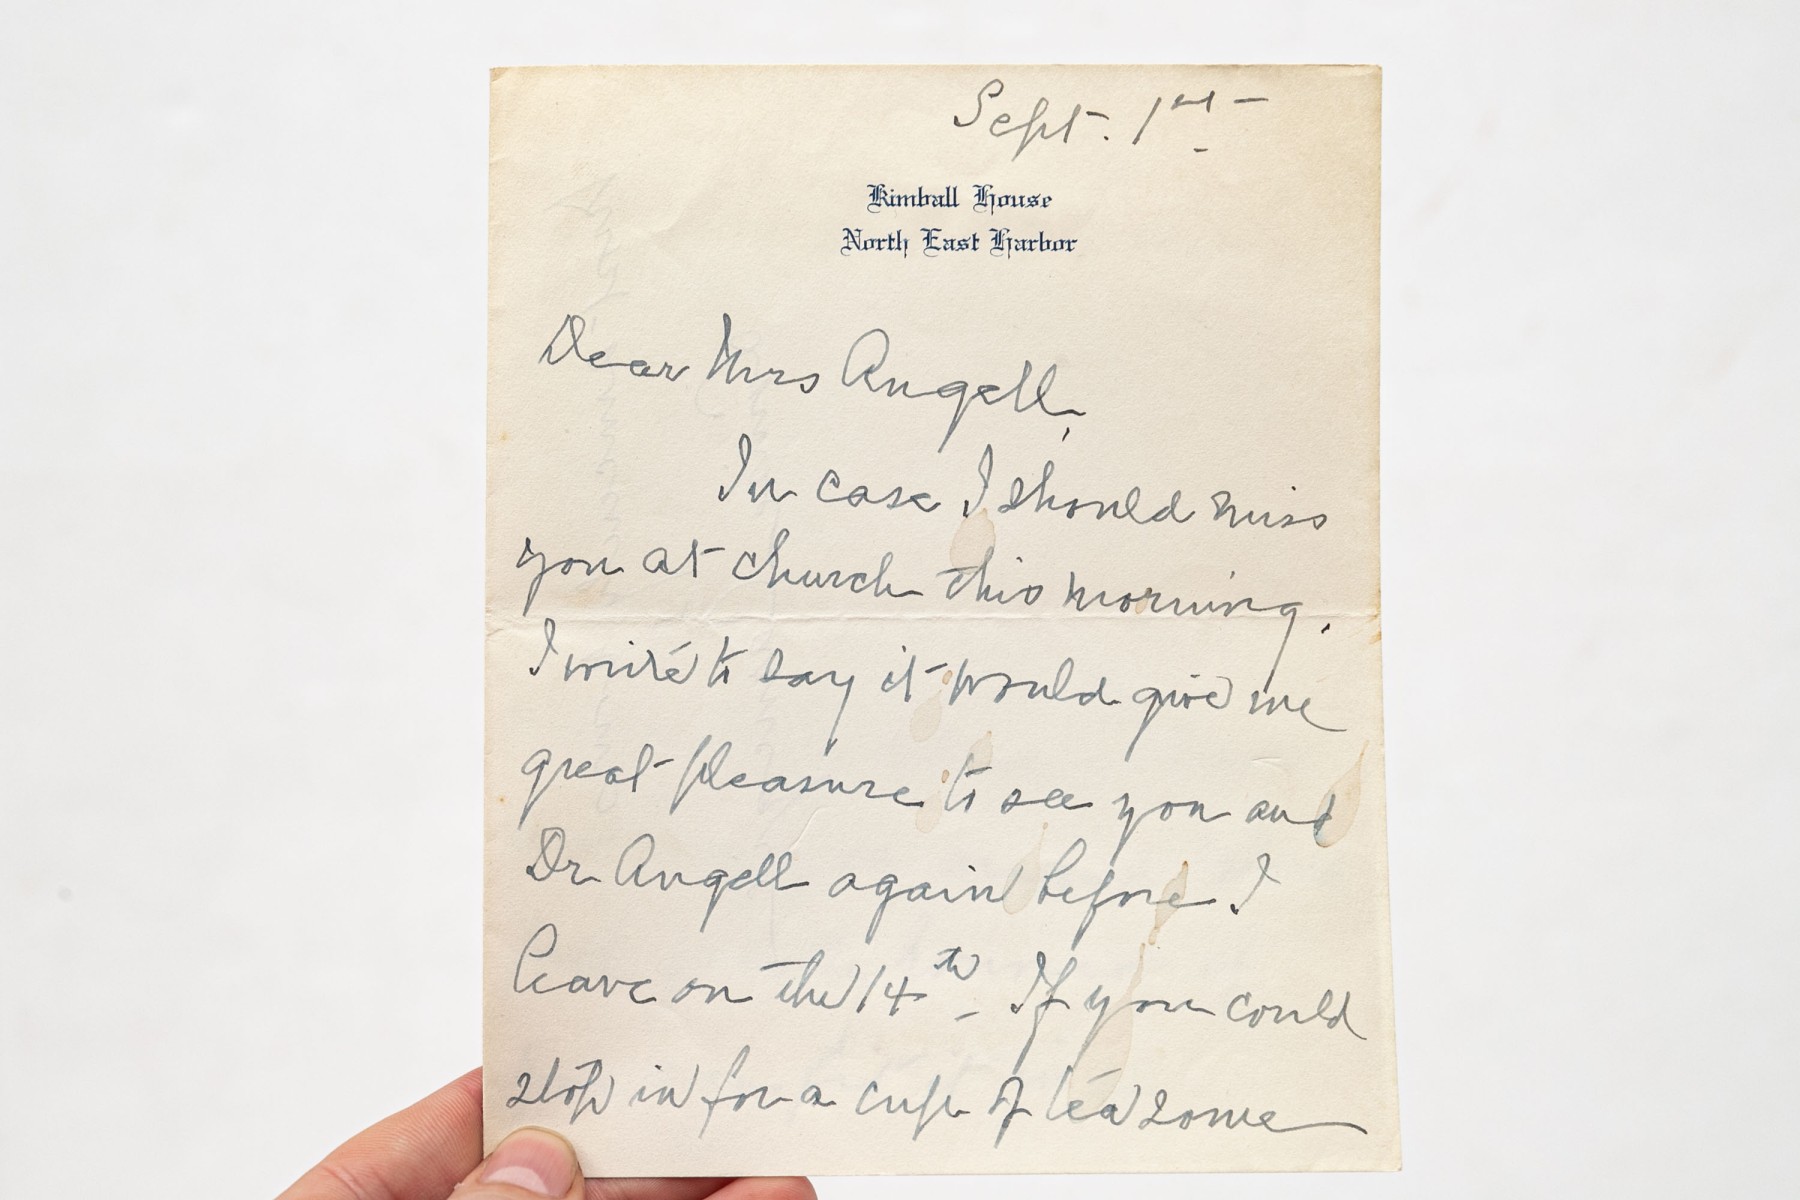 Sept. 1st –
Kimball House
North East Harbor
Dear Mrs Angell,
In case I should miss
you at church this morning,
I write to say it would give me
great pleasure to see you and
Dr Angell again before I
leave on the 14th – If you could
stop in for a cup of tea some